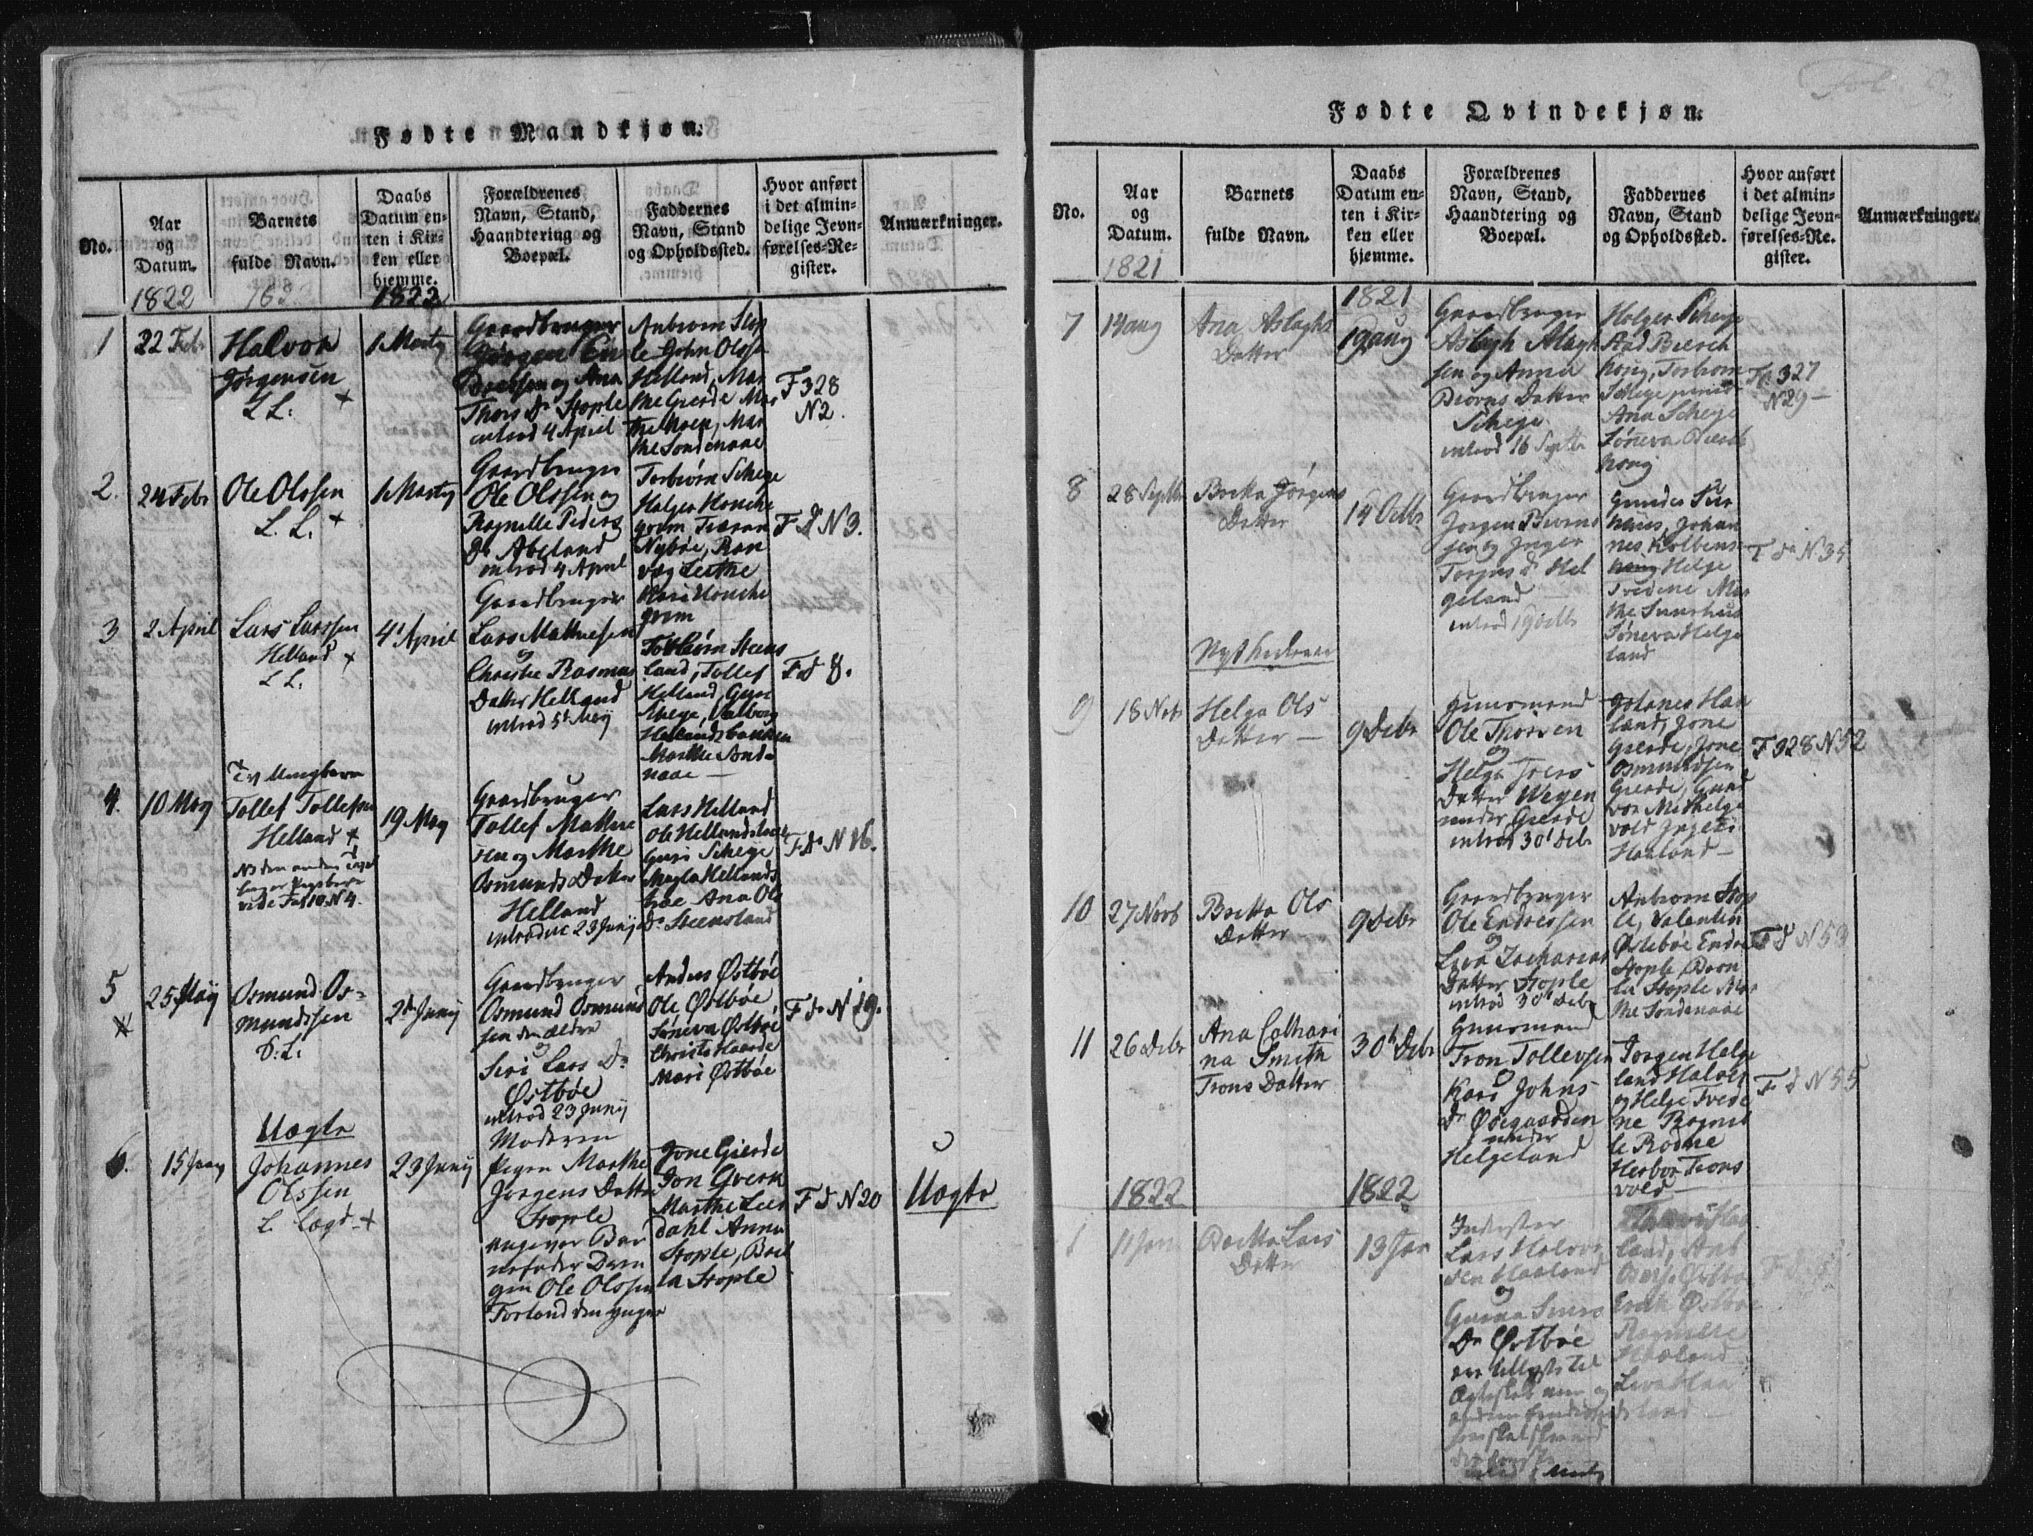 Fødte Mandkjøn.
No.
Aar
og
Datum.
Barnets
fulde Navn.
Daabs
Datum en-
ten i Kir-
ken eller
hjemme.
Forældrenes
Navn, Stand,
Haandtering og
Boepæl.
Faddernes
Navn, Stand
og Opholdssted.
Hvor anført
i det almin-
delige Jevn-
førelses-Re-
gister.
Anmærkninger.
1822
1822
1
22 Feb
Halvor
Jørgensen
L L. +
1 Marty
Gaardbruger
Jørgen En
dresen og Ana
Thors Dr Stople
introd 4 April
Anbiørn Stop
le John Olsse
Helland, Mar
the Gierde Mar
the Moen, Mar
the Sondenaae
F 328
N 2.
2.
24 Febr
Ole Olssen
L. L. +
1 Marty
Gaardbruger
Ole Olssen og
Ragnille Peders
Dr Abeland
introd 4 April
Torbiørn Schege
Holger Honche
grem
Nyböe, Ran
veg Leethe
Kari Honche
grem
F d N 3.
3
2 April
Lars Larssen
Helland +
L L.
4 April
Gaardbruger
Lars Mathiesen
og
Christie Rasmus
Datter Helland
introd 5t May
Torbiørn Steens
land, Tollef
Helland, Guri
Schege, Valborg
Hellandsbacken
Marthe Sonde
naae
F d 8.
4.
10 May
Tvillingbarn
Tollef Tollefsen
Helland +
NB den anden Tvil
linger Pigebarn
vide Fol 10 N 4.
19 May
Gaardbruger
Tollef Mathie
sen og Marthe
Osmunds Datter
Helland
introduc 23 Junij
Lars Helland
Ole Hellandsbac
Guri Schege
Magla Hellands
Ana Ols
Dr Steensland
F d N 16.
5
25 May
Osmund Os-
mundssen
S. L.
2d Junij
Gaardbruger
Osmund Osmund
sen den ældre
og
Siri Lars Dr
Østbøe
introd 23 Junij
Anders Østbøe
Ole Østbøe
Søneva Østbøe
Christi Haarde
Mari Østbøe
F d N 19.
6.
15 Juny
Uægte
Johannes
Olssen
L. Lagd +
23 Junij
Moderen
Pigen Marthe
Jørgens Datter
Stople
angiver Bar
nefader Dren
gen Ole Olssen
Forland den yngre
Jone Gierde
Jon Qverk
Marthe Leer
dahl Anna
Stople, Boel
la Stople
F d N 20
Uægte
Fødte Qvindekjøn.
No.
Aar
og
Datum.
Barnets
fulde Navn.
Daabs
Datum en-
ten i Kir-
ken eller
hjemme.
Forældrenes
Navn, Stand,
Haandtering og
Boepæl.
Faddernes
Navn, Stand
og Opholdssted.
Hvor anført
i det almin-
delige Jevn-
førelses-Re-
gister.
Anmærkninger.
1821
1821
7
14 aug
Ana Aslaghs
Datter
19 aug
Gaardbruger
Aslagh Aslagh
sen og Anna
Biørns Datter
Schege
introd 16 Septbr
Holger Schege
Aad Bierch
houg, Torbiørn
Schege
Ana Schege
Søneva Bierch
houg
F 327
N 29
8
28 Septbr
Berta Jørgens
Datter
14 Octbr
Gaardbruger
Jørgen Biørns
sen og Inger
Torgers Dr Hel
geland
introd 19 Octbr
Gunder Sun
haus, Johan
nes Kolbens-
Helge
Tvedene Mar
the Sunshus
Søneva Helge
land
F d N 35
9
18 Novb
Helga Ols
Datter
9 Debr
Huusmand
Ole Thorsen
og
Helga Joers
Datter Wegen
under Gierde
introd 30t Debr
Johanes Haa
land, Jone
Gierde, Jone
Osmundsen
Gierde, Gund
vor Mithelge
vold Ingeri
Haaland
F 328 N 52
10
27 Novb
Beritta Ols
Datter
9 Debr
Gaardbruger
Ole Endressen
og
Liva Zacharias
Datter Stople
introd 30t Debr
Anbiorn Stop
le, Valentin
Østebøe Endre
Stople, Boen
la Stople Mar
the Sondenaae
F d N 53
11
26 Debr
Ana Cathari
na Smith
Trons Datter
30t Debr
Huusmand
Tron Tollevsen
og
Kari Johns
Dr Ødegaarden
under
Helgeland
Jørgen Helge
land Halver
og Helge Tvede
ne Ragnil
le Rødne
Herbor Trons
vold
F d N 55
1822
1822
1
11 Jan
Beritta Lars
Datter
13 Jan
Inderster
Lars Halvor
sen Haaland
og
Guroa Sivers
Dr Østbøe
land, Anb
Østbø
Erik Østbøe
Ragnilde
Haaland
Liva Haa
land